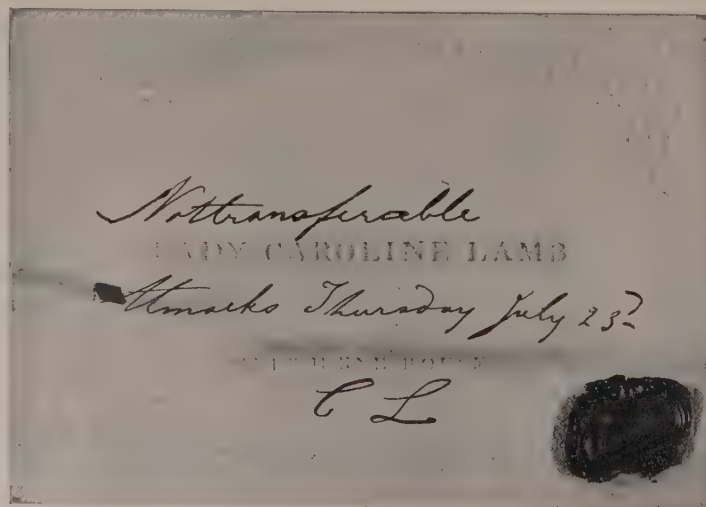 Not transferable
LADY CAROLINE LAMB
Almacks Thursday July 23d
HOUSE
C L